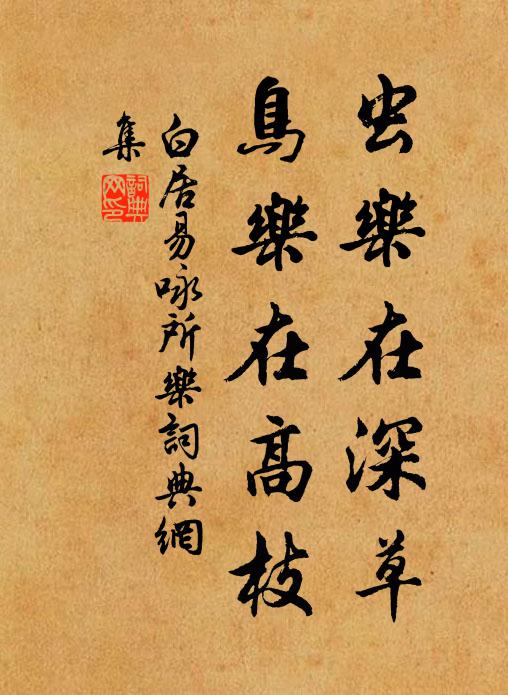 虫樂在深草
鳥樂在高枝
白居易咏所樂詞典網
集
詞典
网印